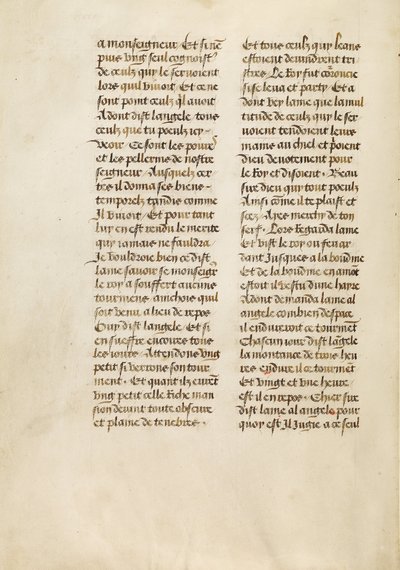 a monseigneur. Et si ne
puis vng seul cognoistre
de ceulz quy le seruoient
lors quil viuoit. Et ce ne
sont point ceulz q̃l auoit
Adont dist langele. tous
ceulz que tu poeulz icy
veoir. Ce sont les poures
et les pellerins de nostre
seigneur. Ausquelz cer
tes il donna ses biens
temporelz tandis comme
Il viuoit. Et pour tant
luy en est rendu le merite
quy iamais ne fauldra
Je vouldroie bien ce dist
lame sauoir se monseigr̃
le roy a souffert aucuns
tourmens. ainchois quil
soit venu a lieu de repos
Ouy dist langele. Et si
en sueffre encores tous
les iours. Attendons vng
petit si verrons son tour
ment. Et quant ilz eurent
vng petit celle riche man
sion deuant toute obscure
et plaine de tenebres.
Et tous ceulz quy leans
estoient deuindrent tri
stres. Le Roy fut couroucie
si se leua et party. Et a
dont vey lame que la mul
titude de ceulz quy le ser
uoient tendoient leurs
mains au chiel et prioient
dieu deuotement pour
le Roy et disoient. Beau
sire dieu quy tout poeulz
Ainsi cõme il te plaist et
scez. Ayes merchy de ton
serf. Lors Regarda lame
Et vist le roy ou feu ar
dant Jusques a la boudine
Et de la boudine en amõt
estoit il vestu dune hayre
Adont demanda lame al
angele combien despace
il endureroit ce tourmẽt
Chascun iour dist lãgele
la montance de trois heu
res endure il ce tourment
Et vingt et vne heure
est il en repos. Chier sire
dist lame al angele pour
quoy est Il Jugie a ce seul